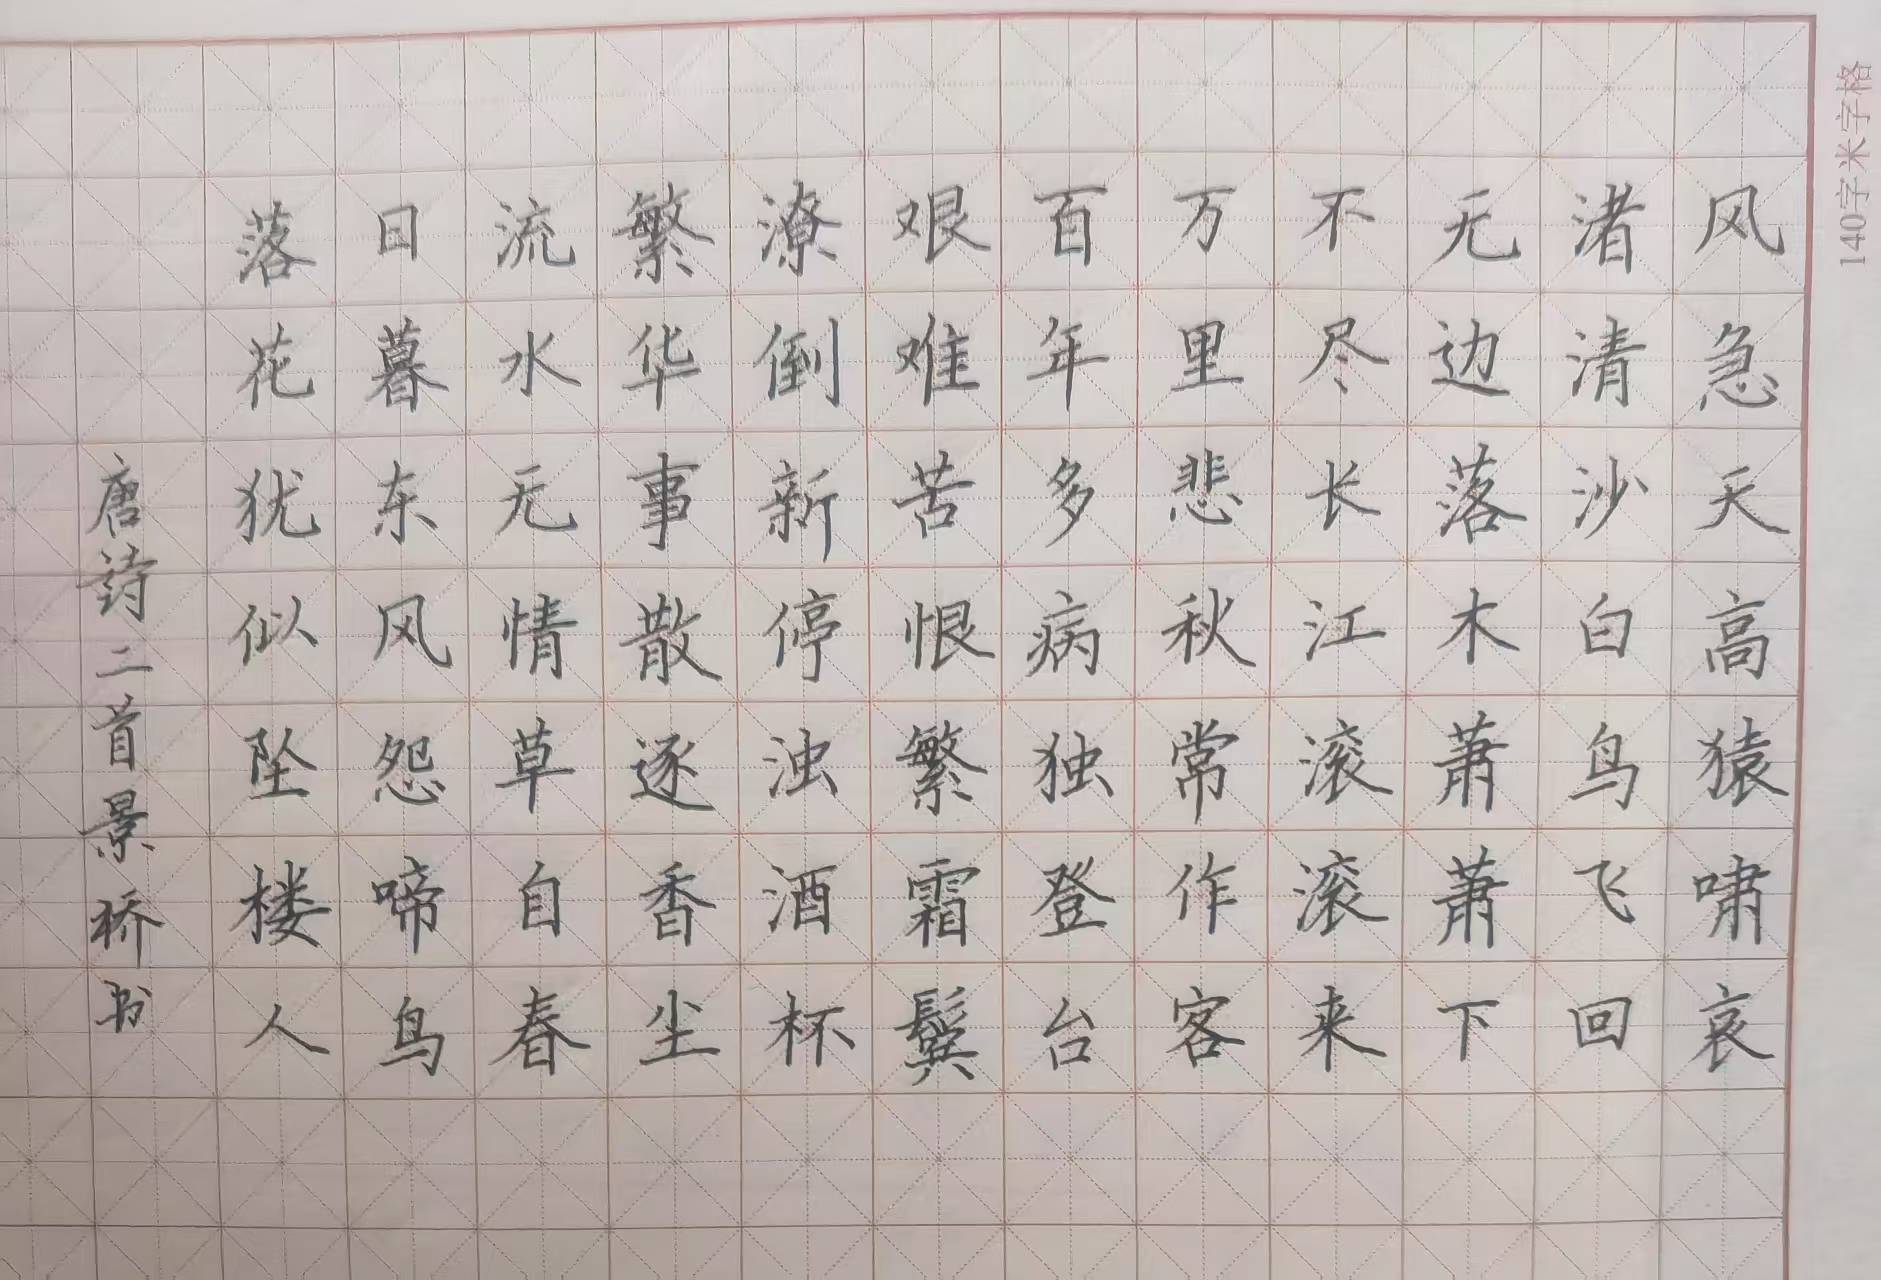 风急天高猿啸哀
渚清沙白鸟飞回
无边落木萧萧下
不尽长江滚滚来
万里悲秋常作客
百年多病独登台
艰难苦恨繁霜鬓
潦倒新停浊酒杯
繁华事散逐香尘
流水无情草自春
日暮东风怨啼鸟
落花犹似坠楼人
唐诗二首景桥书
140字米字格